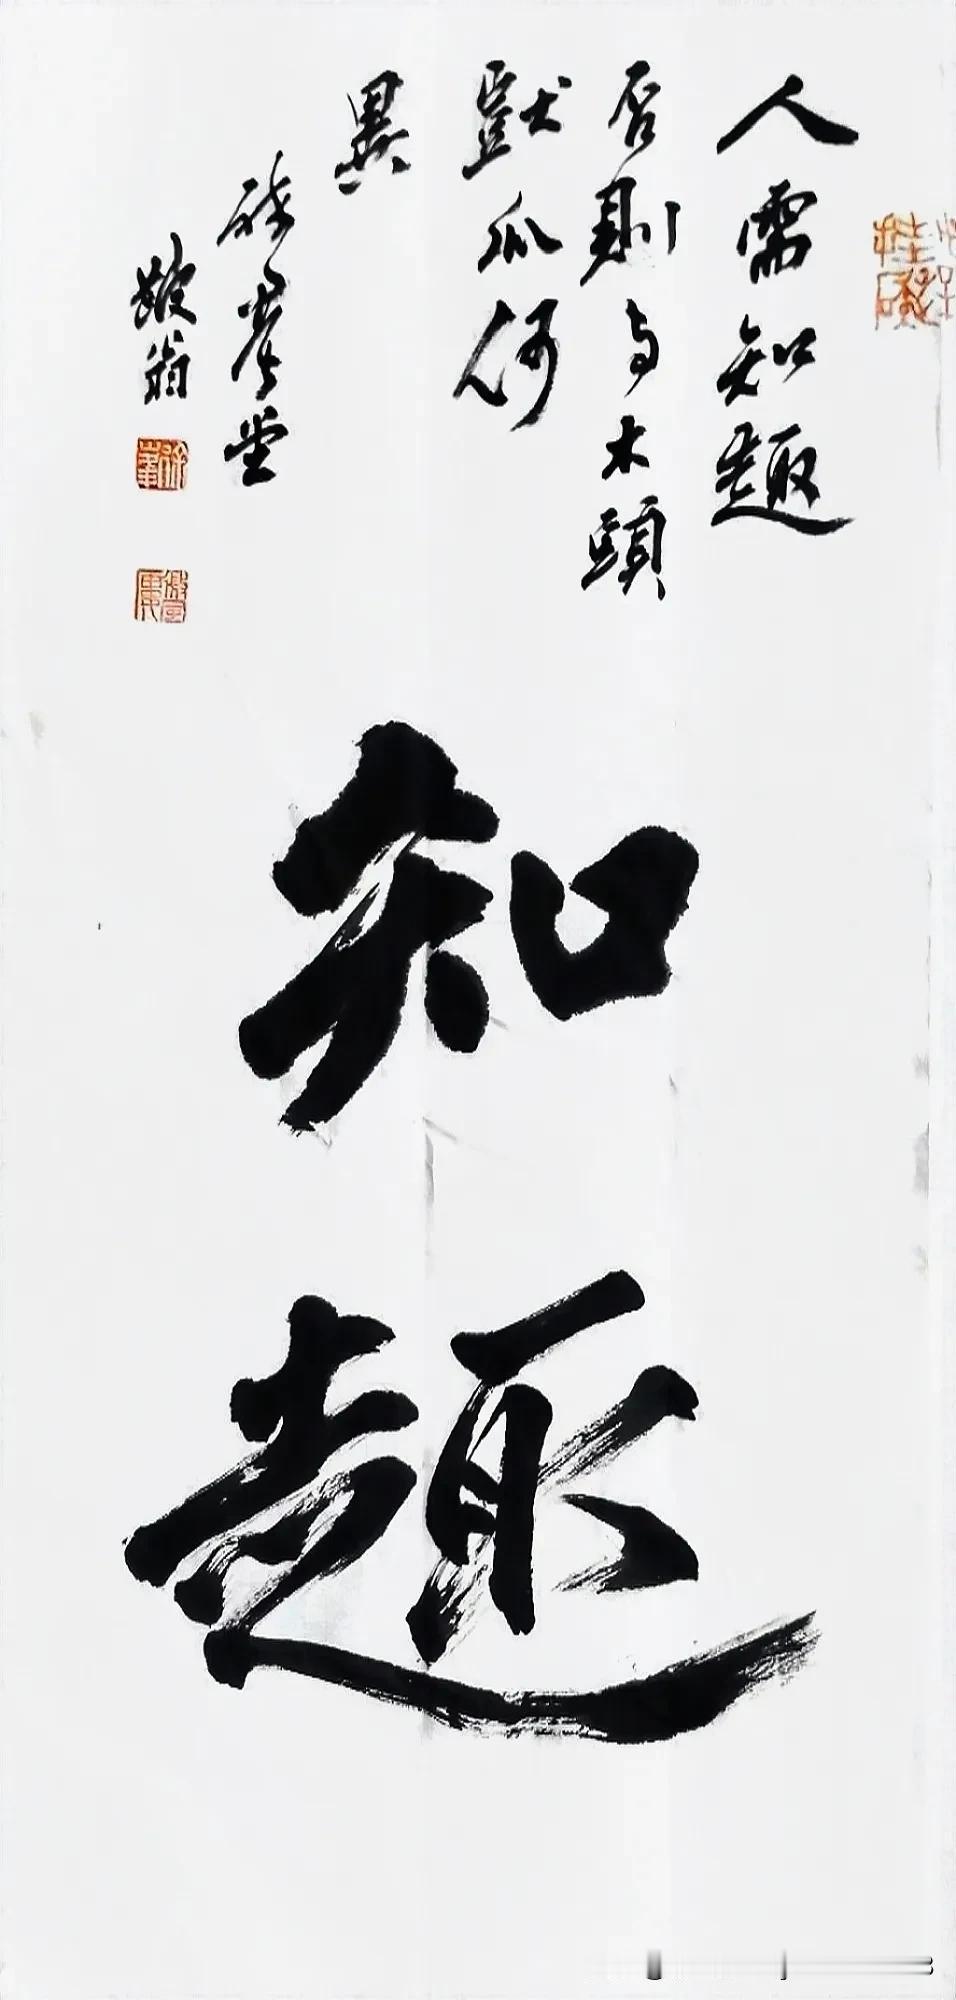 人需知趣
否則与木頭
獃瓜何
異
堂
翁
知趣